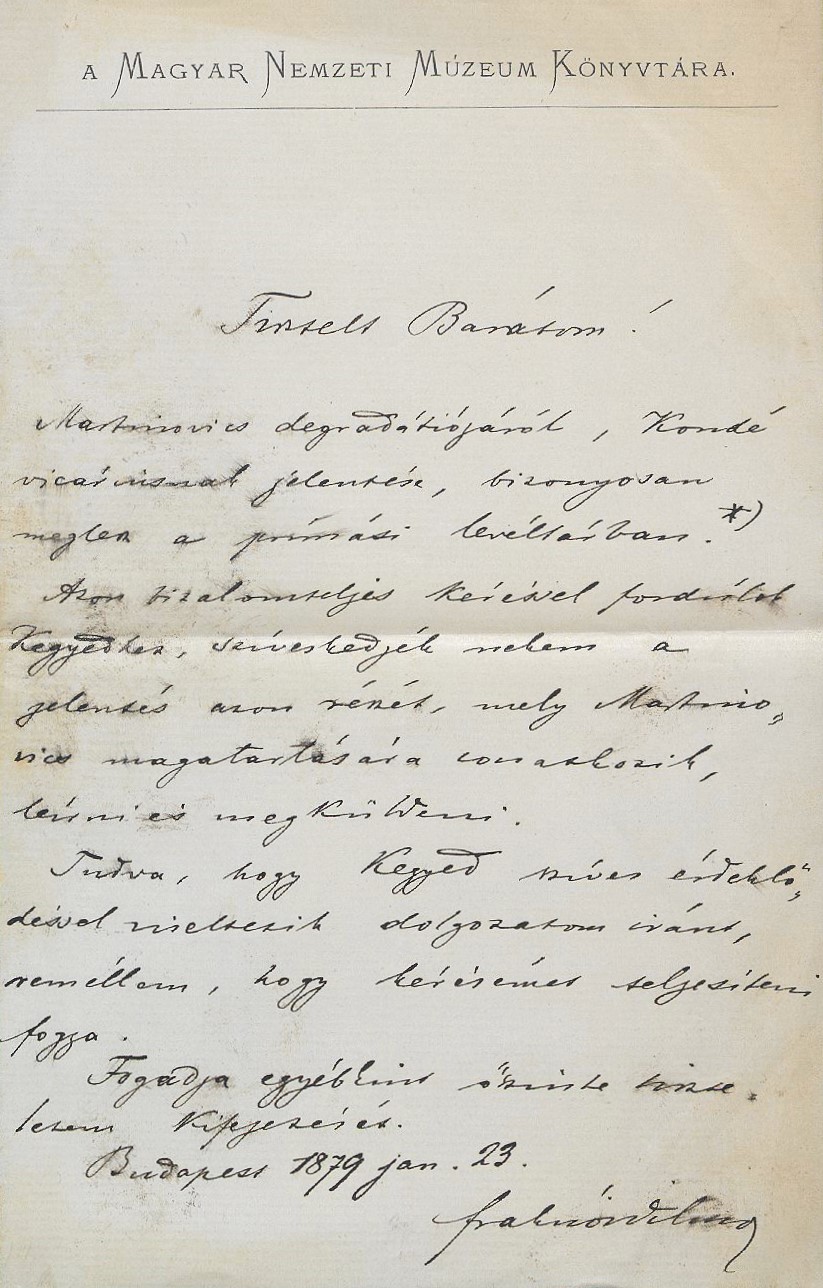 A MAGYAR NEMZETI MÚZEUM KÖNYVTÁRA.
Tisztelt Barátom!
Martinovics degradátiójáról, Kondé
vicariusnak jelentése, bizonyosan
meglesz a prímási levéltárban.*)
Azon bizalomteljes kéréssel fordúlok
Kegyedhez, szíveskedjék nekem a
jelentés azon részét, mely Martino„
vics magatartására vonatkozik,
leírni és megküldeni.
Tudva, hogy Kegyed szíves érdeklő„
déssel viseltetik dolgozatom iránt,
reméllem, hogy kérésemet teljesíteni
fogja.
Fogadja egyébkint őszinte tiszte„
letem kifejezését.
Budapest 1879 jan. 23.
Fraknói Vilmos